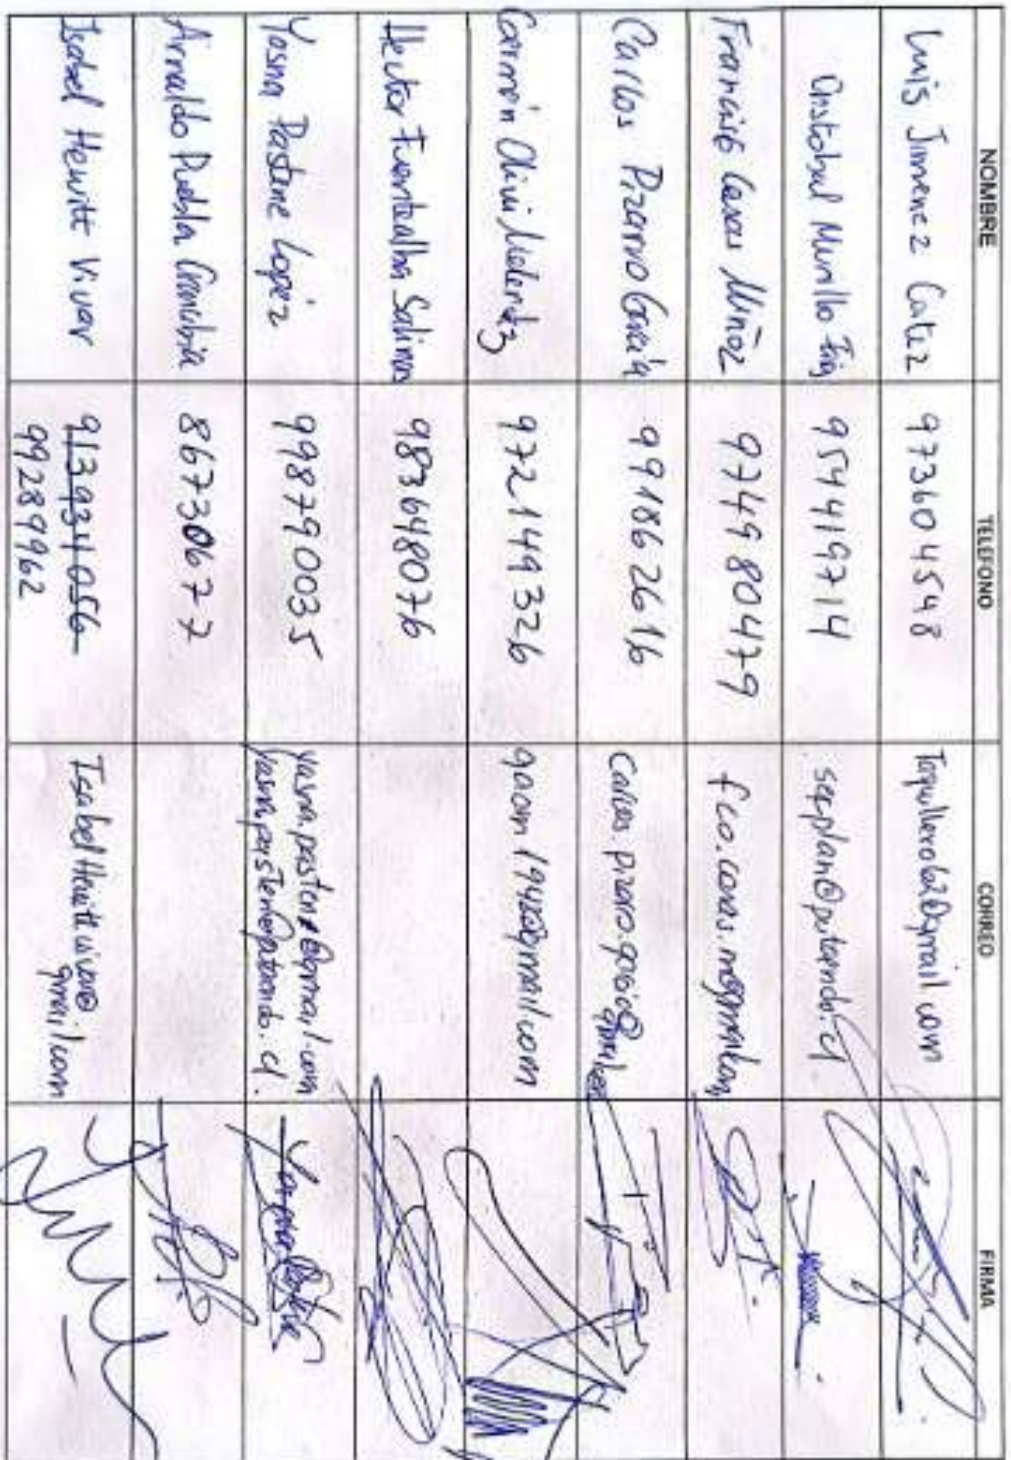 NOMBRE TELEFONO CORREO FIRMA
Luis Jimenez Catez 973604548 Torpillero62@gmail.com
Cristobal Murillo 954419714 secplan@putaendo.cl
Francisco Casas Muñoz 974980479
Carlos Pizarro García 991862616
Carmén Olivi 972149326 gaom1942@gmail.com
Hector Fuentealba Salinas 983648076
Yasna Pastene Lopez 998790035 yasna.pastene@gmail.com
yasna.pastene@putaendo.cl.
Arnaldo Puebla Arancibia 86730677
Isabel Hewitt Vivar 913934056 IsabelHewittvivar@
992899962 gmail.com